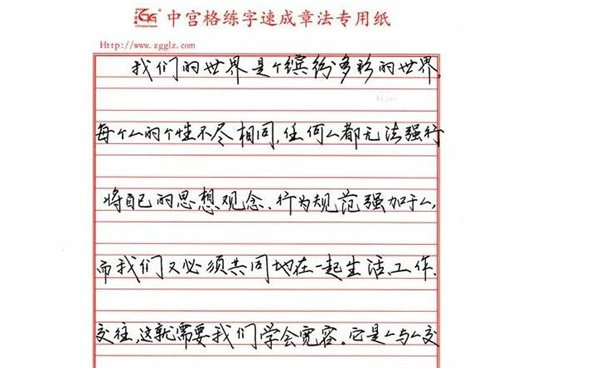 ZGG 中宫格练字速成章法专用纸
Http://www.zgglz.com
我们的世界是个缤纷多彩的世界,
每个人的个性不尽相同,任何人都无法强行
将自己的思想观念、行为规范强加于人,
而我们又必须共同地在一起生活工作、
交往,这就需要我们学会宽容。它是人与人交